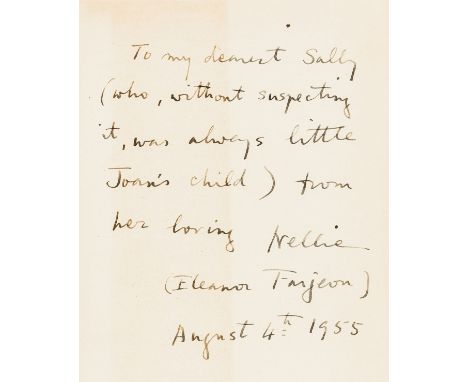 To my dearest Sally
(who, without suspecting
it, was always little
Joan's child) from
her loving Nellie
(Eleanor Farjeon)
August 4th 1955